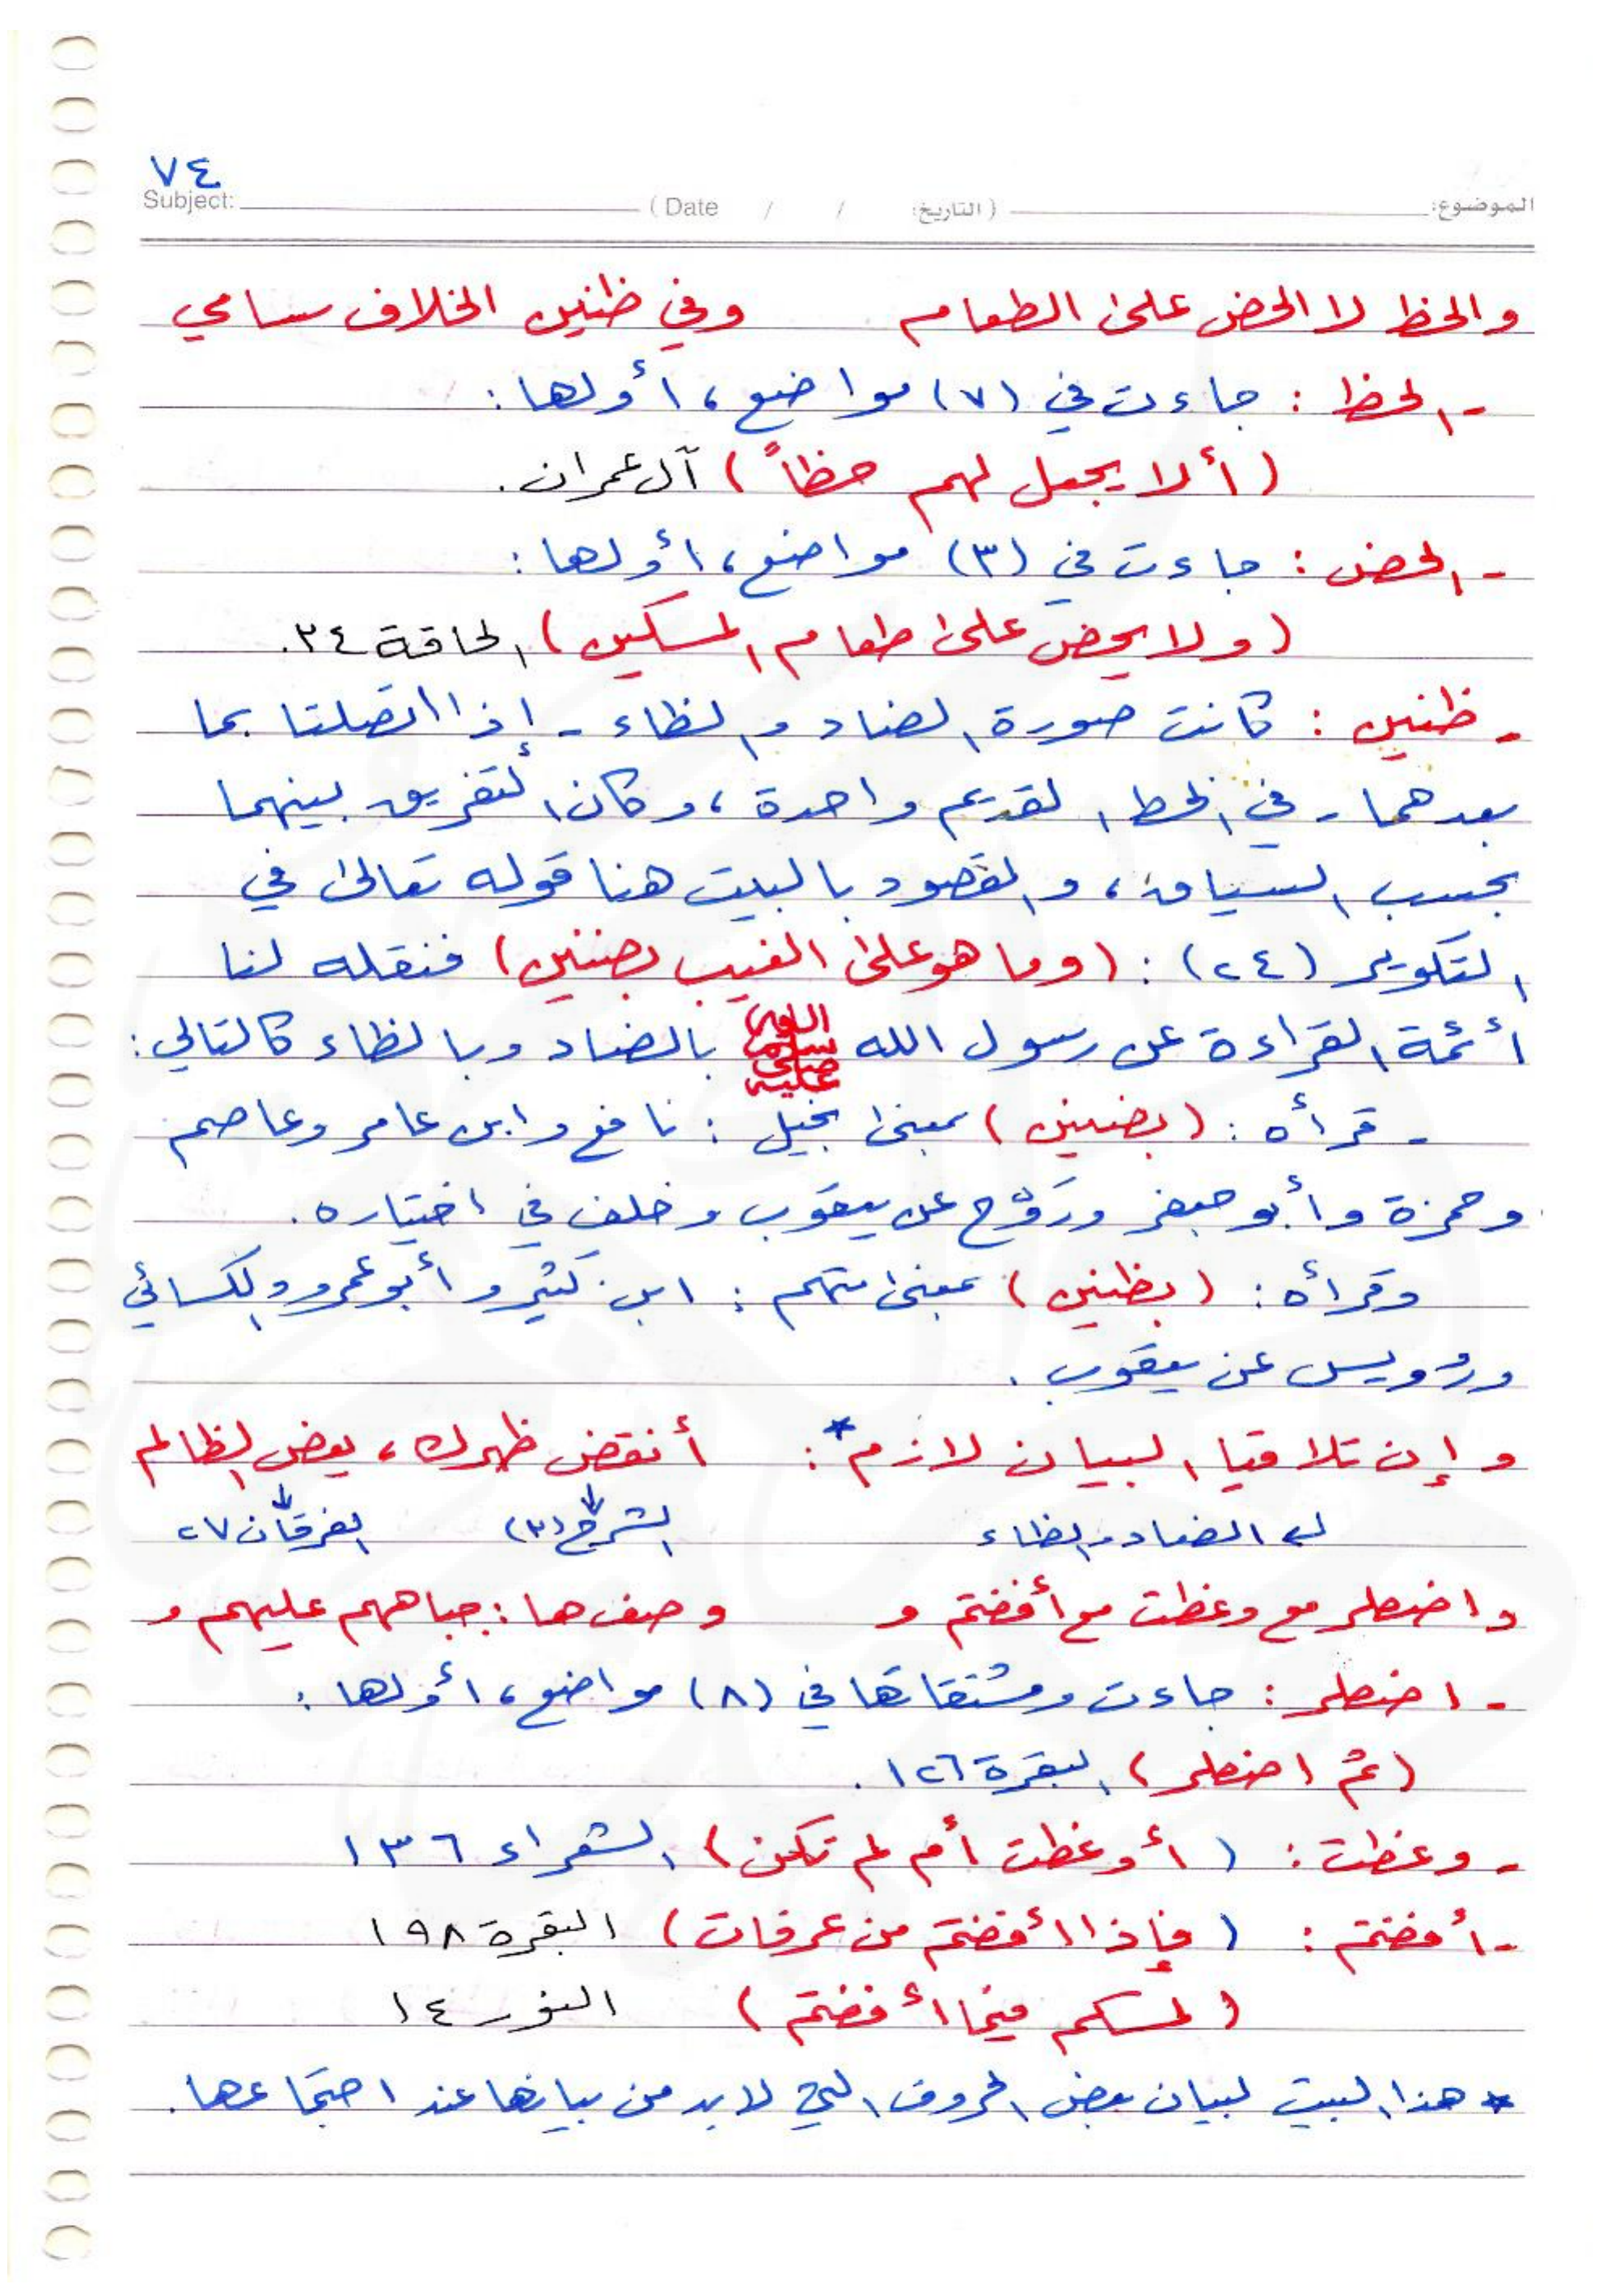 ٧٤
Subject: (Date / / التاريخ:) الموضوع:
والحظ لا الحض على الطعام وفي ظنين الخلاف سامي
- الحظ : جاءت في (٧) مواضع ، أولها :
(ألا يجعل لهم حظاً) آل عمران .
- الحض : جاءت في (٣) مواضع ، أولها :
(ولا يحض على طعام المسكين) الحاقة ٣٤ .
- ظنين : كانت صورة الضاد والظاء - إذا اتصلتا بما
بعدهما - في الخط القديم واحدة ، وكان التفريق بينهما
بحسب السياق ، والمقصود بالبيت هنا قوله تعالى في
التكوير (٢٤) : (وما هو على الغيب بضنين) فنقله لنا
أئمة القراءة عن رسول الله صلى الله عليه وسلم بالضاد وبالظاء كالتالي :
- قرأه : (بضنين) بمعنى بخيل : نافع وابن عامر وعاصم
وحمزة وأبو جعفر ورَوْح عن يعقوب وخلف في اختياره .
وقرأه : (بظنين) بمعنى متهم : ابن كثير وأبو عمرو والكسائي
ورُويس عن يعقوب .
وإن تلاقيا البيان لازم * : أنقض ظهرك ، يعض الظالم
الضاد والظاء الشرح (٣) الفرقان ٢٧
واضطر مع وعظت مع أفضتم و وصف ها : جباههم عليهم و
- اضطر : جاءت ومشتقاتها في (٨) مواضع ، أولها :
(ثم اضطر) البقرة ١٢٦ .
- وعظت : (أوعظت أم لم تكن) الشعراء ١٣٦
- أفضتم : (فإذا أفضتم من عرفات) البقرة ١٩٨
(لمسكم فيما أفضتم) النور ١٤
* هذا البيت لبيان بعض الحروف التي لابد من بيانها عند اجتماعها .